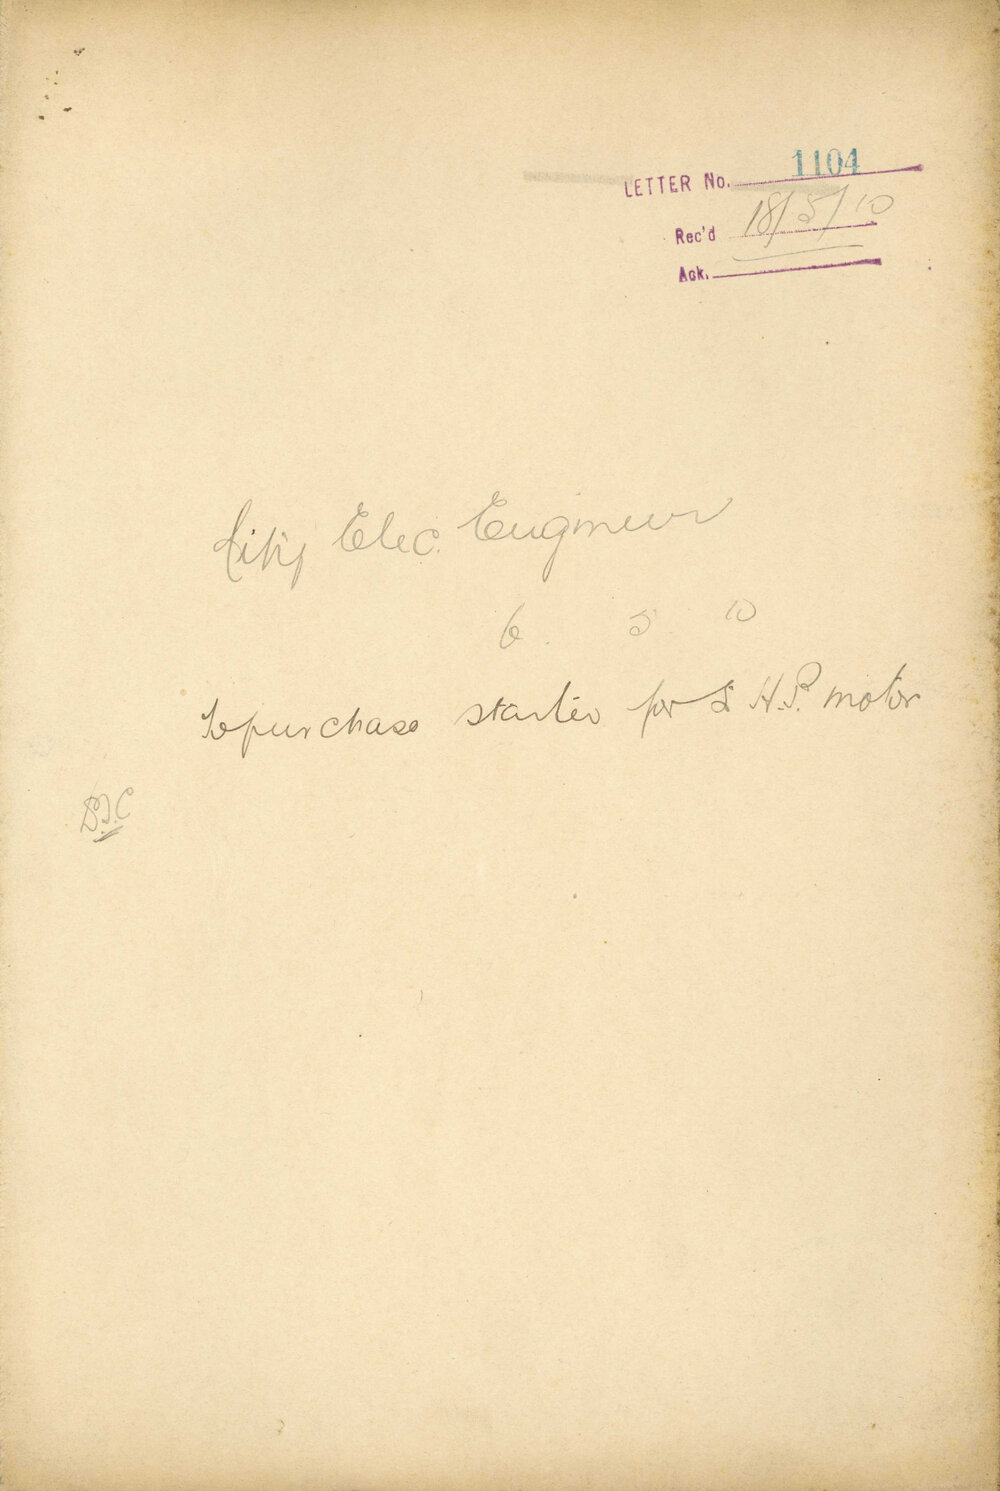 LETTER No. 1104
Rec'd 18/5/10
Ack.
City Elec. Engineer
6 . 5 . 10
To purchase starter for 5 H.P. motor